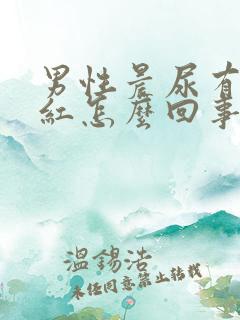 男性晨尿有
紅怎麼回事
溫錫浩
未经同意禁止转载